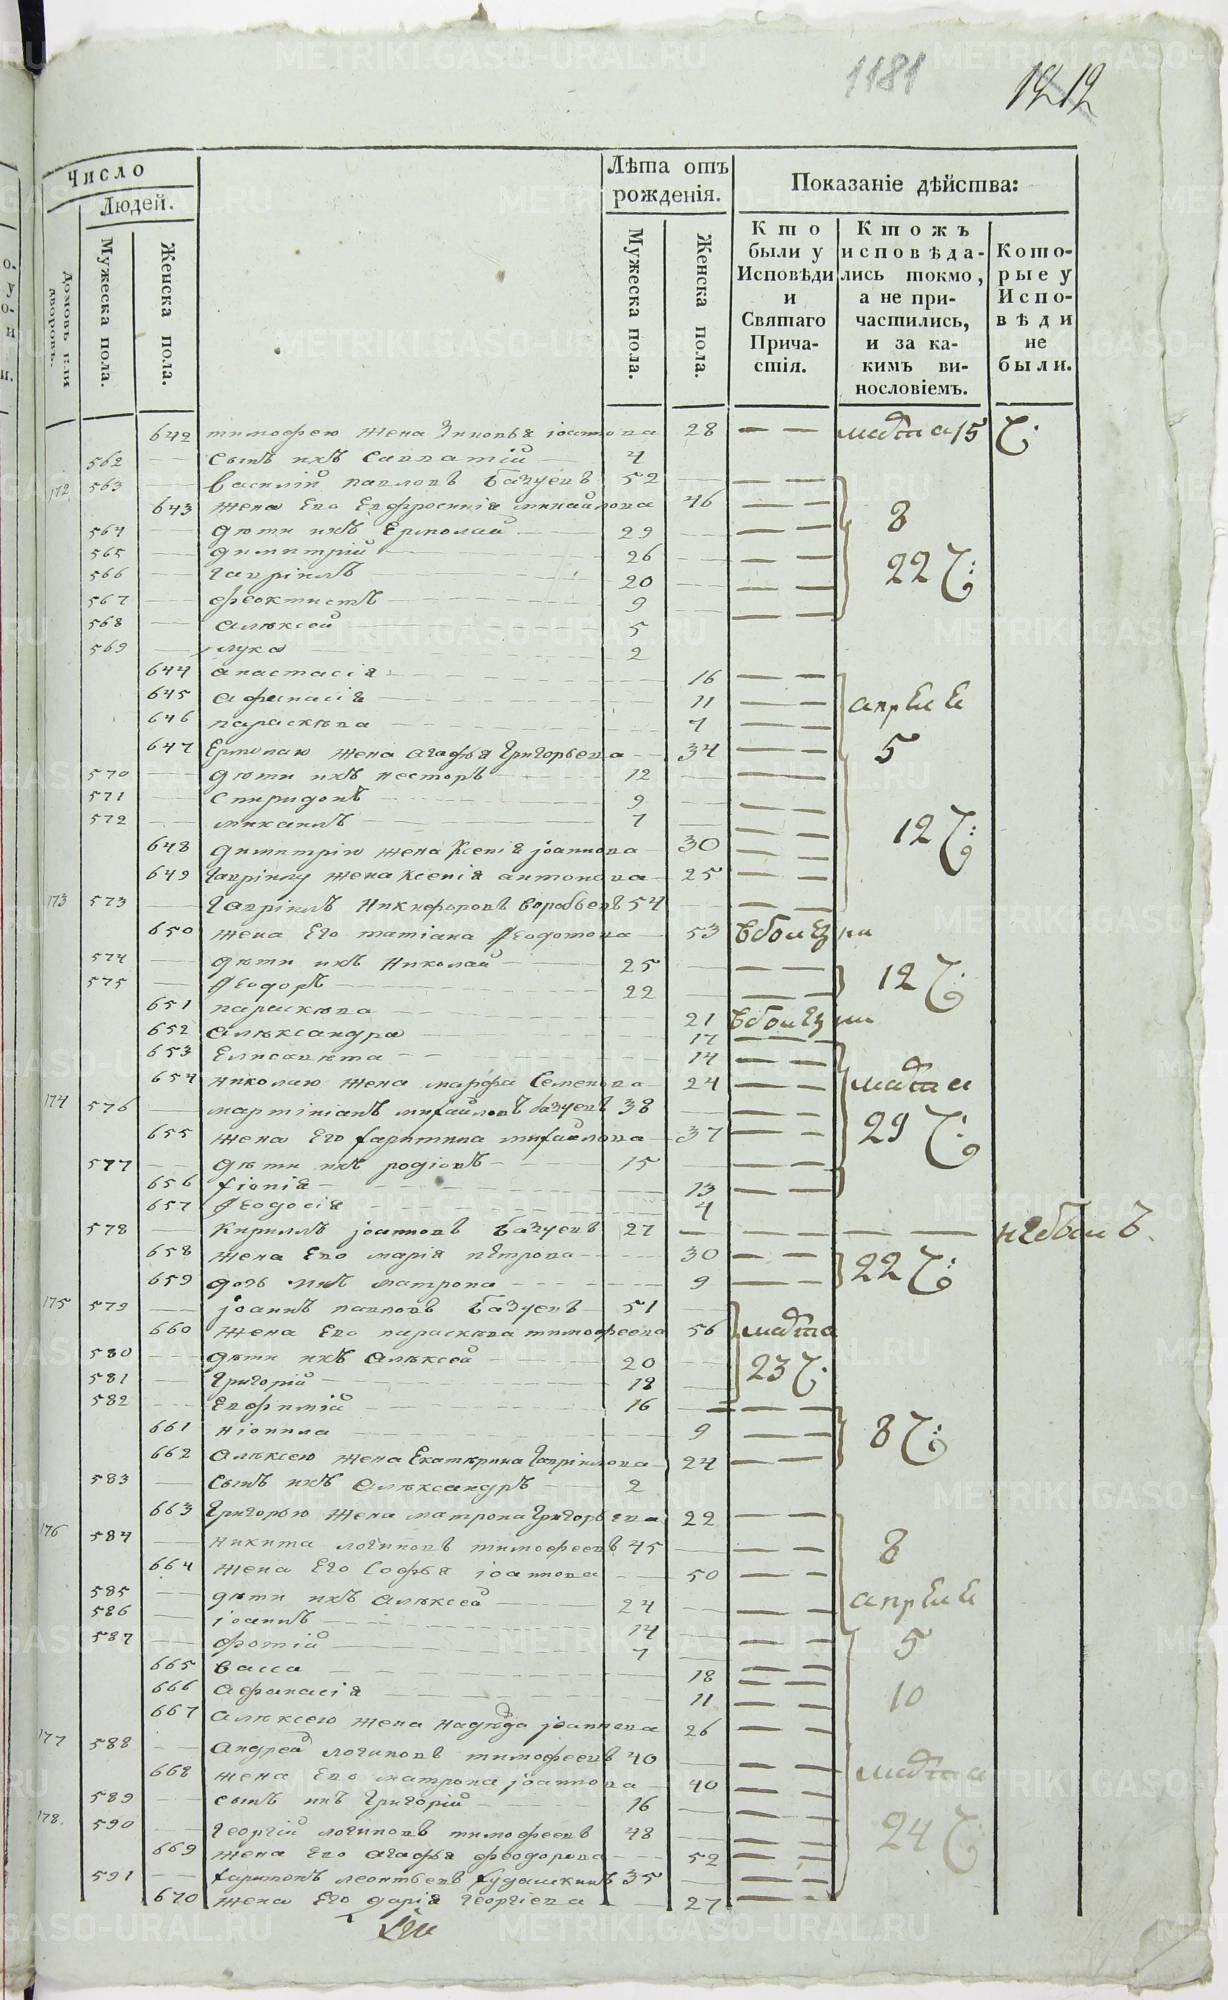 1181
1212
Число
Людей.
Домовъ или дворовъ.
Мужеска пола.
Женска пола.
Лѣта отъ рожденія.
Мужеска пола.
Женска пола.
Показаніе дѣйства:
Кто были у Исповѣди и Святаго Причастія.
Ктожъ исповѣдались токмо, а не причастились, и за какимъ винословіемъ.
Которые у Исповѣди не были.
642 тимофею жена Зиновья іоаннова 28 марта 15 Ч:
562 сынъ ихъ Савватій 4
172 563 василій павловъ базуевъ 52
643 жена Его Евфросинія михайлова 46
564 дѣти ихъ Ермолай 29 8
565 димитрій 26
566 гавріилъ 20 22 Ч:
567 феоктистъ 9
568 алѣксей 5
569 лука 2
644 анастасія 16
645 афанасія 11 апрѣля
646 параскѣва 7
647 Ермолаю жена агафья григорьева 34 5
570 дѣти ихъ несторъ 12
571 спиридонъ 9
572 михаилъ 7
648 димитрію жена Ксенія іоаннова 30 12 Ч:
649 гавріилу жена Ксенія антонова 25
173 573 гавріилъ Никифоровъ воробьевъ 54
650 жена Его татіана Ѳеодотова 53 въ болѣзни
574 дѣти ихъ Николай 25 12 Ч:
575 Ѳеодоръ 22
651 параскѣва 21 въ болѣзни
652 алѣксандра 17
653 Елисавѣта 14
654 николаю жена марфа Семенова 24 марта
174 576 мартініанъ михайловъ базуевъ 38
655 жена Его харитина михайлова 37 29 Ч:
577 дѣти ихъ родіонъ 15
656 хіонія 13
657 Ѳеодосія 4
578 Кириллъ іоанновъ базуевъ 27 не былъ
658 жена Его марія пѣтрова 30 22 Ч:
659 дочь ихъ матрона 9
175 579 іоаннъ павловъ базуевъ 51
660 жена Его параскѣва тимофеева 56 марта
580 дѣти ихъ алѣксей 20 23 Ч:
581 григорій 18
582 Евфимій 16
661 нонилла 9 8 Ч:
662 алѣксею жена Екатѣрина гавріилова 24
583 сынъ ихъ алѣксандръ 2
663 григорью жена матрона григорьева 22
176 584 никита логиновъ тимофеевъ 45 8
664 жена Его Софья іоаннова 50
585 дѣти ихъ алѣксей 24 апрѣля
586 іоаннъ 14
587 фотій 7 5
665 васса 18
666 афанасія 11 10
667 алѣксею жена надѣжда іоаннова 26
177 588 андрей логиновъ тимофеевъ 40 марта
668 жена Его матрона іоаннова 40
589 сынъ ихъ григорій 16
178. 590 георгій логиновъ тимофеевъ 48 24 Ч
669 жена Его агафья феодорова 52
591 харитонъ леонтьевъ худяшкинъ 35
670 жена Его дарія георгіева 27